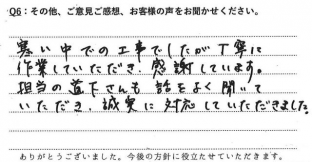 Q6：その他、ご意見ご感想、お客様の声をお聞かせください。
寒い中での工事でしたが丁寧に
作業していただき、感謝しています。
担当の道下さんも話をよく聞いて
いただき、誠実に対応していただきました。
ありがとうございました。今後の方針に役立たせていただきます。